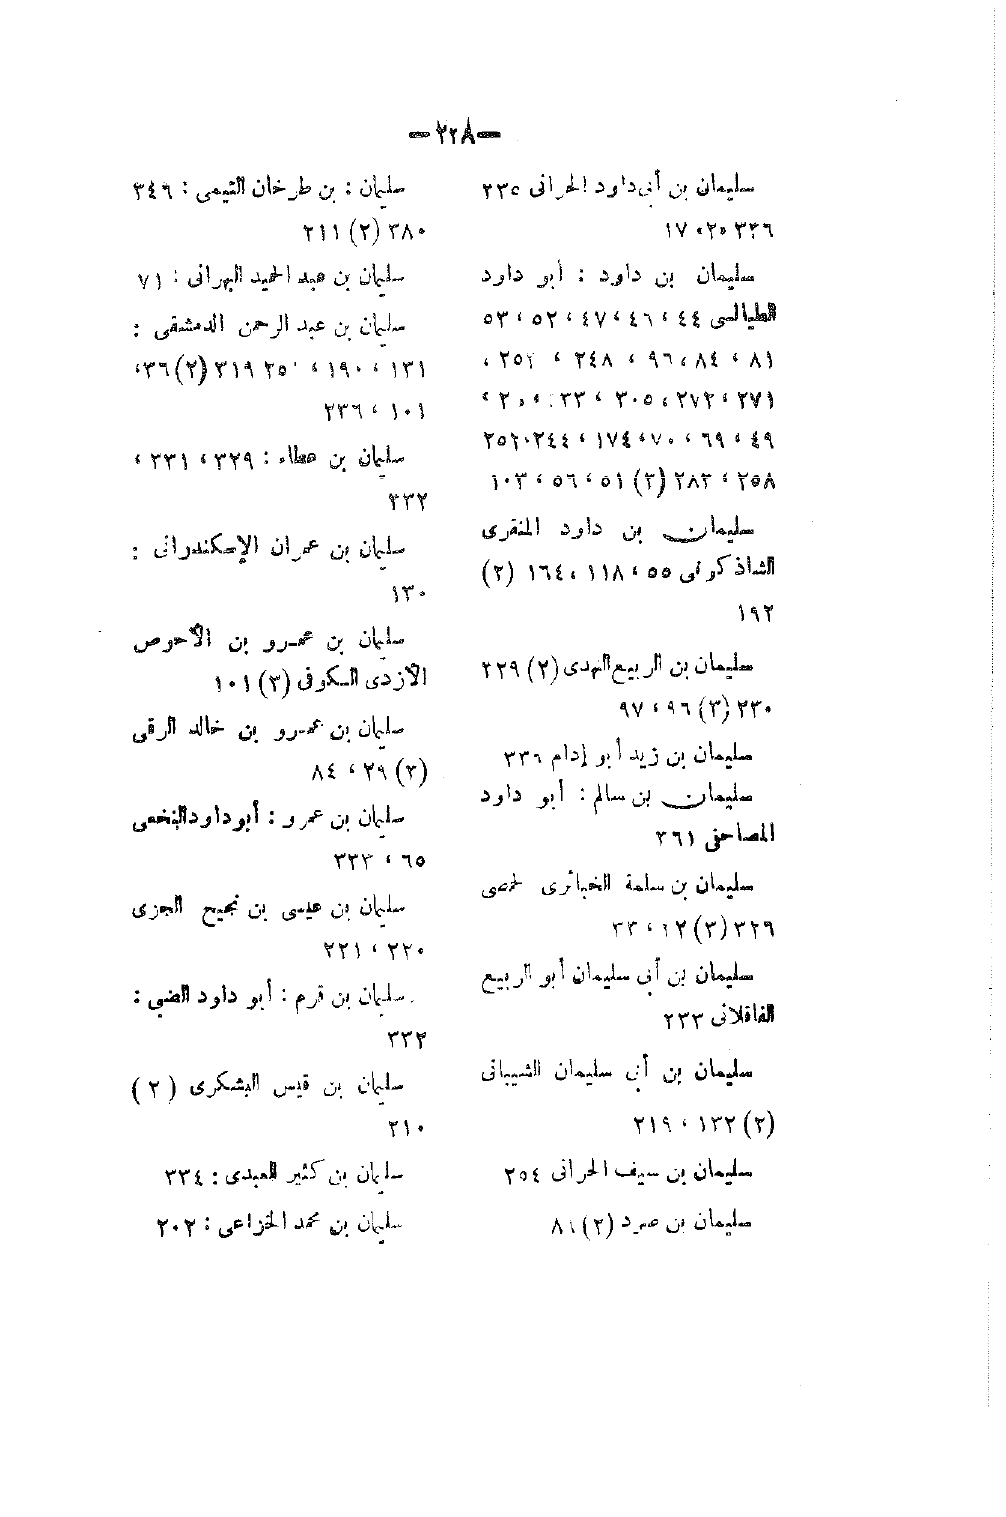 -٢٢٨-
سليمان بن أبى داود الحرانى ٢٣٥
٣٣٦
سليمان بن داود : أبو داود
الطيالسى ٤٤ ، ٤٦ ، ٤٧ ، ٥٢ ، ٥٣
٨١ ، ٨٤ ، ٩٦ ، ٢٤٨ ،
٢٧١ ، ٢٧٢ ، ٣٠٥ ،
٤٩ ، ٦٩ ، ٧٠ ، ١٧٤ ، ٢٤٤ ٢٥٢
٢٥٨ ، ٢٨٣ (٣) ٥١ ، ٥٦ ، ١٠٣
سليمان بن داود المنقرى
الشاذكونى ٥٥ ، ١١٨ ، ١٦٤ (٢)
١٩٢
سليمان بن الربيع النهدى (٢) ٢٢٩
٢٣٠ (٣) ٩٦ ، ٩٧
سليمان بن زيد أبو إدام ٣٣٦
سليمان بن سالم : أبو داود
المصاحفى ٢٦١
سليمان بن سلمة الخبائرى لحمصى
٣٢٩ (٣) ١٢ ، ٣٣
سليمان بن أبى سليمان أبو الربيع
الفاقلانى ٢٣٣
سليمان بن أبى سليمان الشيبانى
(٢) ١٣٢ ، ٢١٩
سليمان بن سيف الحرانى ٢٥٤
سليمان بن صرد (٢) ٨١
سليمان : بن طرخان التيمى : ٣٤٦
٣٨٠ (٢) ٢١١
سليمان بن عبد الحميد البهرانى : ٧١
سليمان بن عبد الرحمن الدمشقى :
١٣١ ، ١٩٠ ، ٣١٩ (٢) ٣٦،
١٠١ ، ٢٣٦
سليمان بن عطاء : ٣٢٩ ، ٢٣١ ،
٣٣٢
سليمان بن عمران الإسكندرانى :
١٣٠
سليمان بن عمرو بن الأحوص
الأزدى الكوفى (٣) ١٠١
سليمان بن عمرو بن خالد الرقى
(٣) ٢٩ ، ٨٤
سليمان بن عمرو : أبو داود النخعى
٦٥ ، ٣٣٣
سليمان بن عيسى بن نجيح الجزى
٢٢٠ ، ٢٢١
سليمان بن قرم : أبو داود الضبى :
٣٣٢
سليمان بن قيس اليشكرى ( ٢ )
٢١٠
سليمان بن كثير العبدى : ٣٣٤
سليمان بن محمد الخزاعى : ٢٠٢